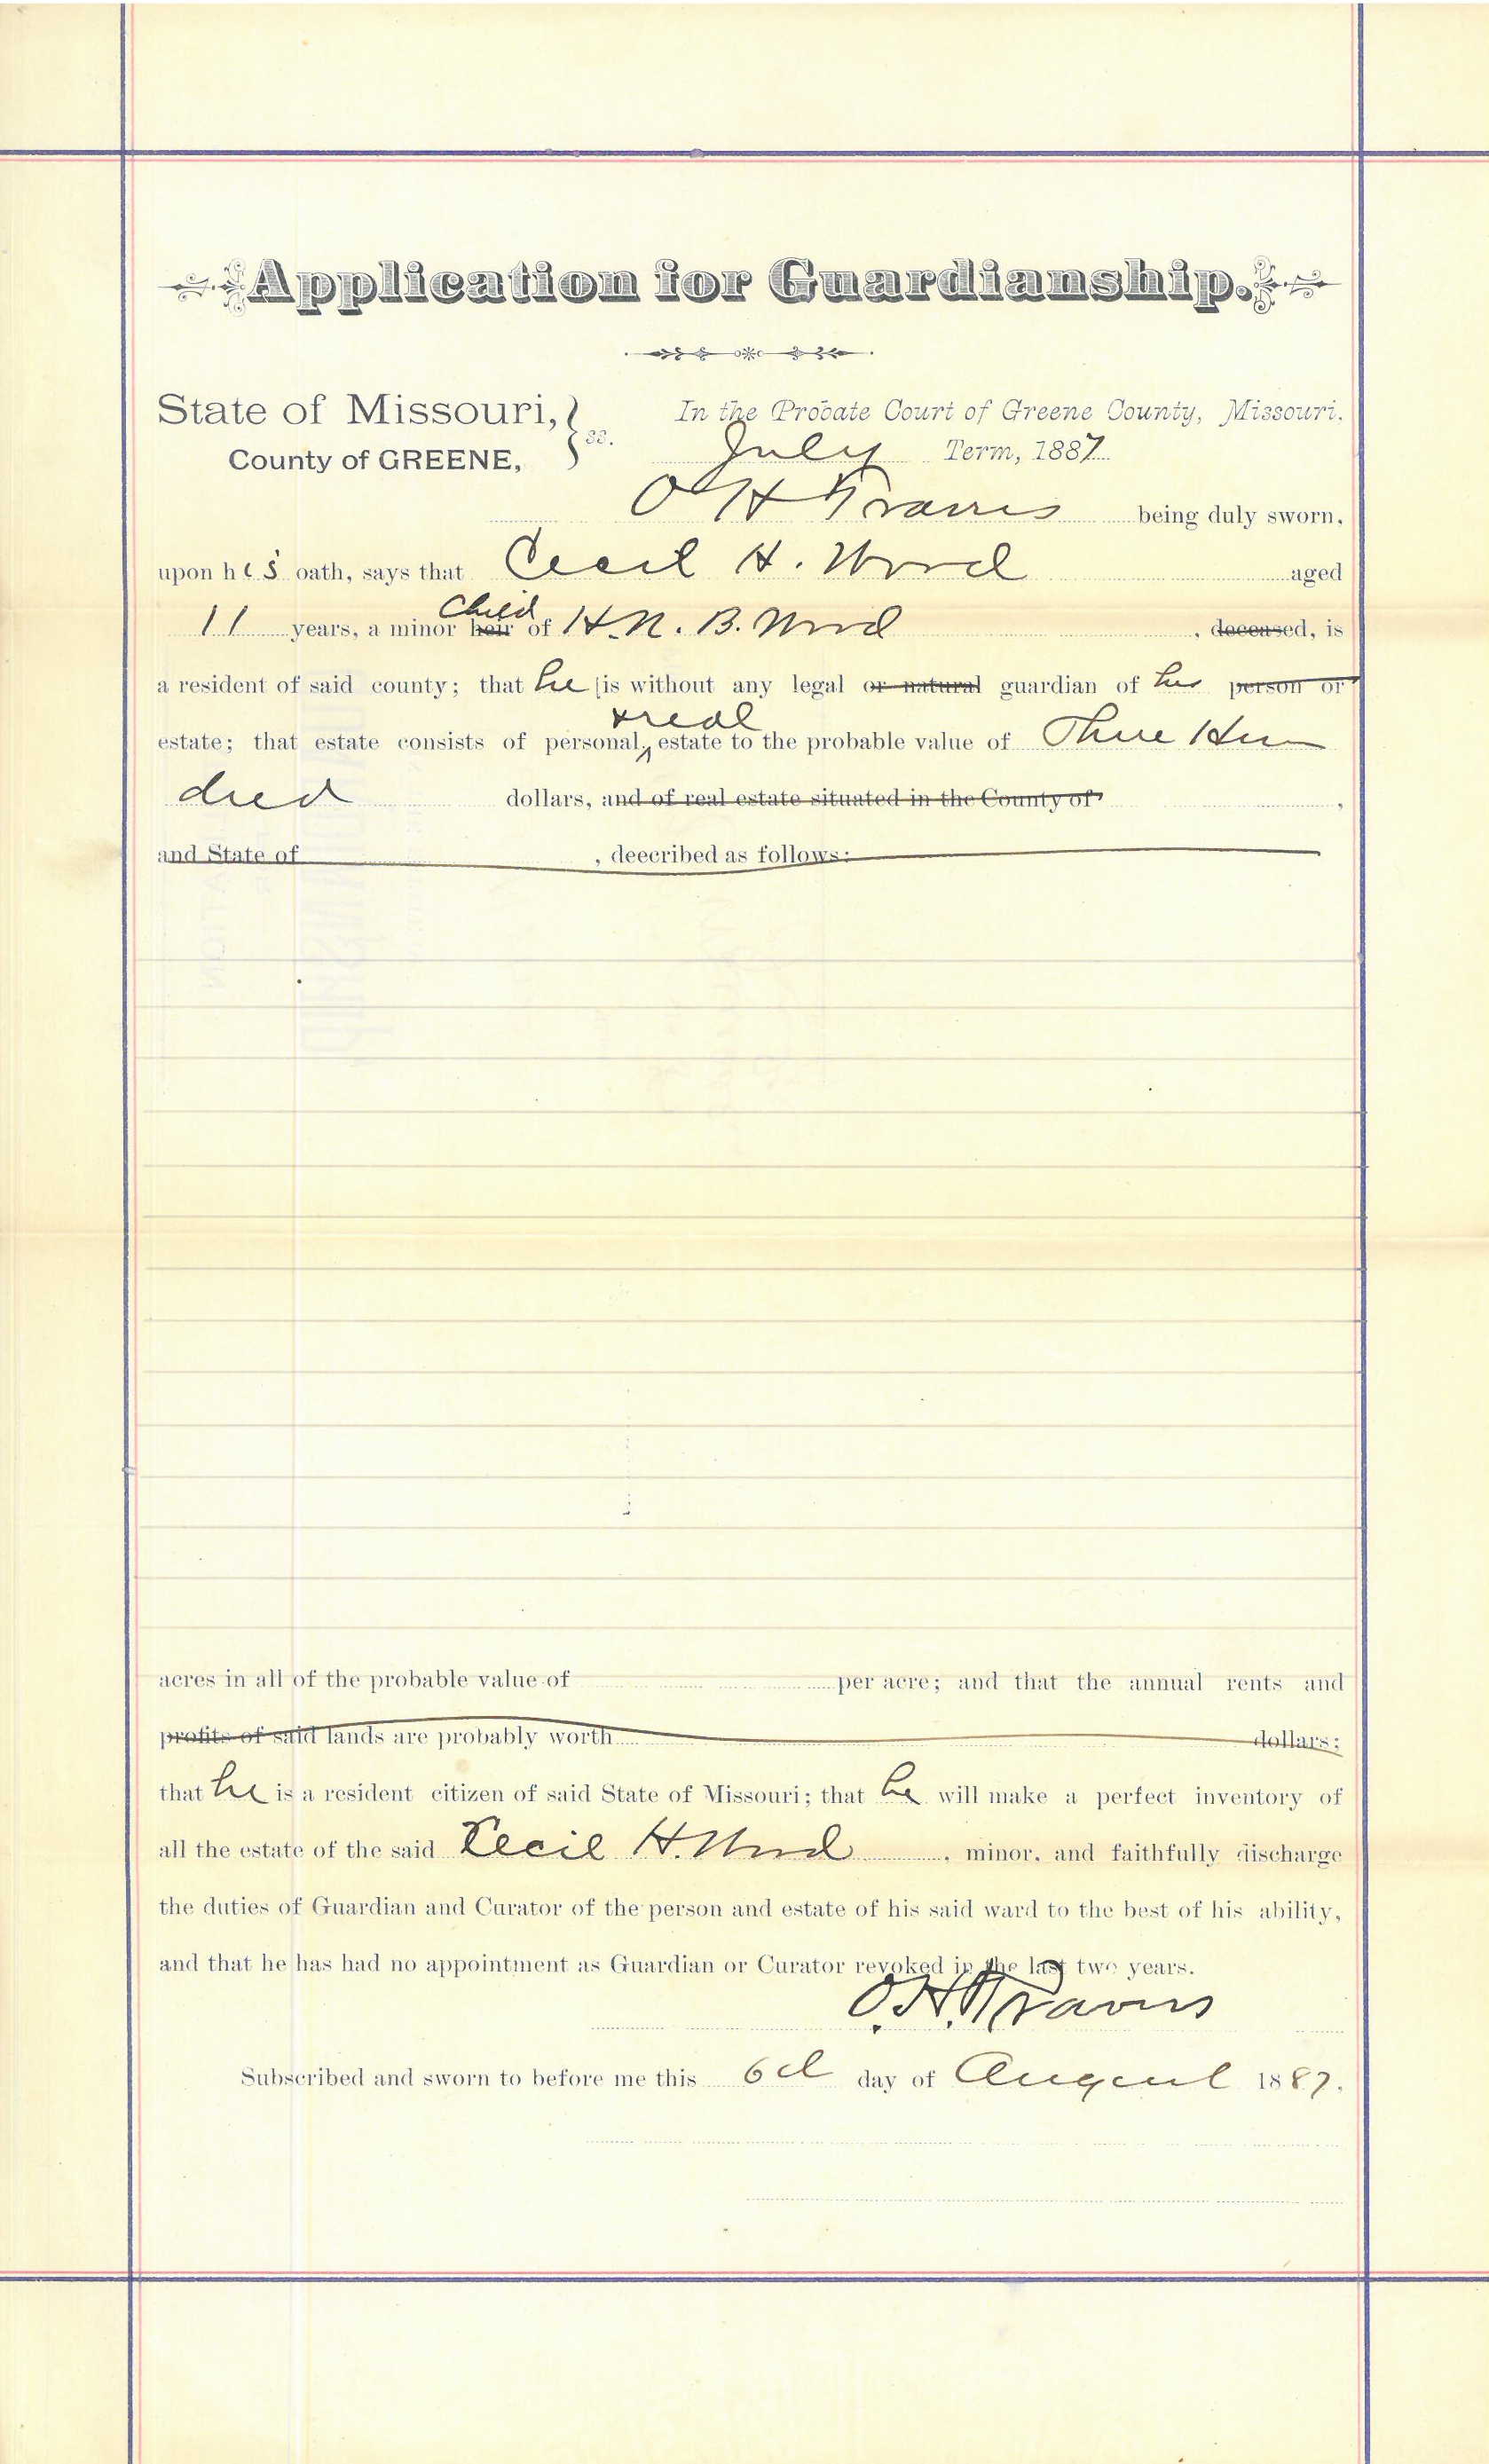 Application for Guardianship.
State of Missouri, } ss. In the Probate Court of Greene County, Missouri.
County of GREENE, July Term, 1887.
O H Travis being duly sworn,
upon his oath, says that Cecil H. Wood aged
child
11 years, a minor heir of H. N. B. Wood, deceased, is
a resident of said county; that he is without any legal or natural guardian of his person or
& real
estate; that estate consists of personal, estate to the probable value of Three Hun
dred dollars, and of real estate situated in the County of ,
and State of , deecribed as follows:
acres in all of the probable value of per acre; and that the annual rents and
profits of said lands are probably worth dollars;
that he is a resident citizen of said State of Missouri; that he will make a perfect inventory of
all the estate of the said Cecil H. Wood, minor, and faithfully discharge
the duties of Guardian and Curator of the person and estate of his said ward to the best of his ability,
and that he has had no appointment as Guardian or Curator revoked in the last two years.
O. H. Travis
Subscribed and sworn to before me this 6th day of August 1887.